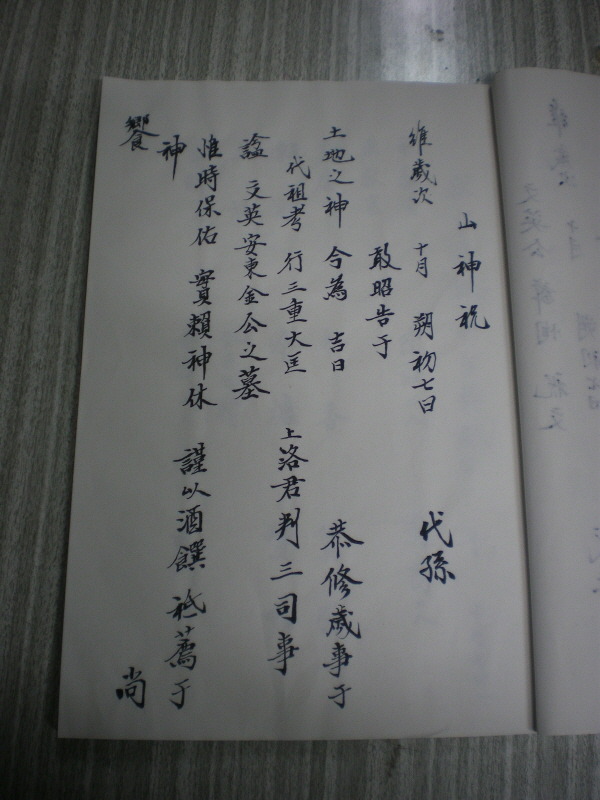 山神祝
維歲次 十月 朔初七日 代孫
敢昭告于
土地之神 今為 吉日 恭修歲事于
代祖考 行三重大匡 上洛君判三司事
諡 文英安東金公之墓
惟時保佑 實賴神休 謹以酒饌 祗薦于
神 尚
饗